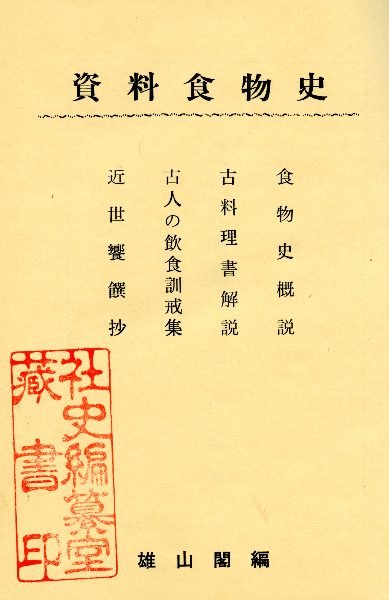 資料食物史
食物史概説
古料理書解説
古人の飲食訓戒集
近世饗饌抄
社史編纂室
蔵書印
雄山閣編